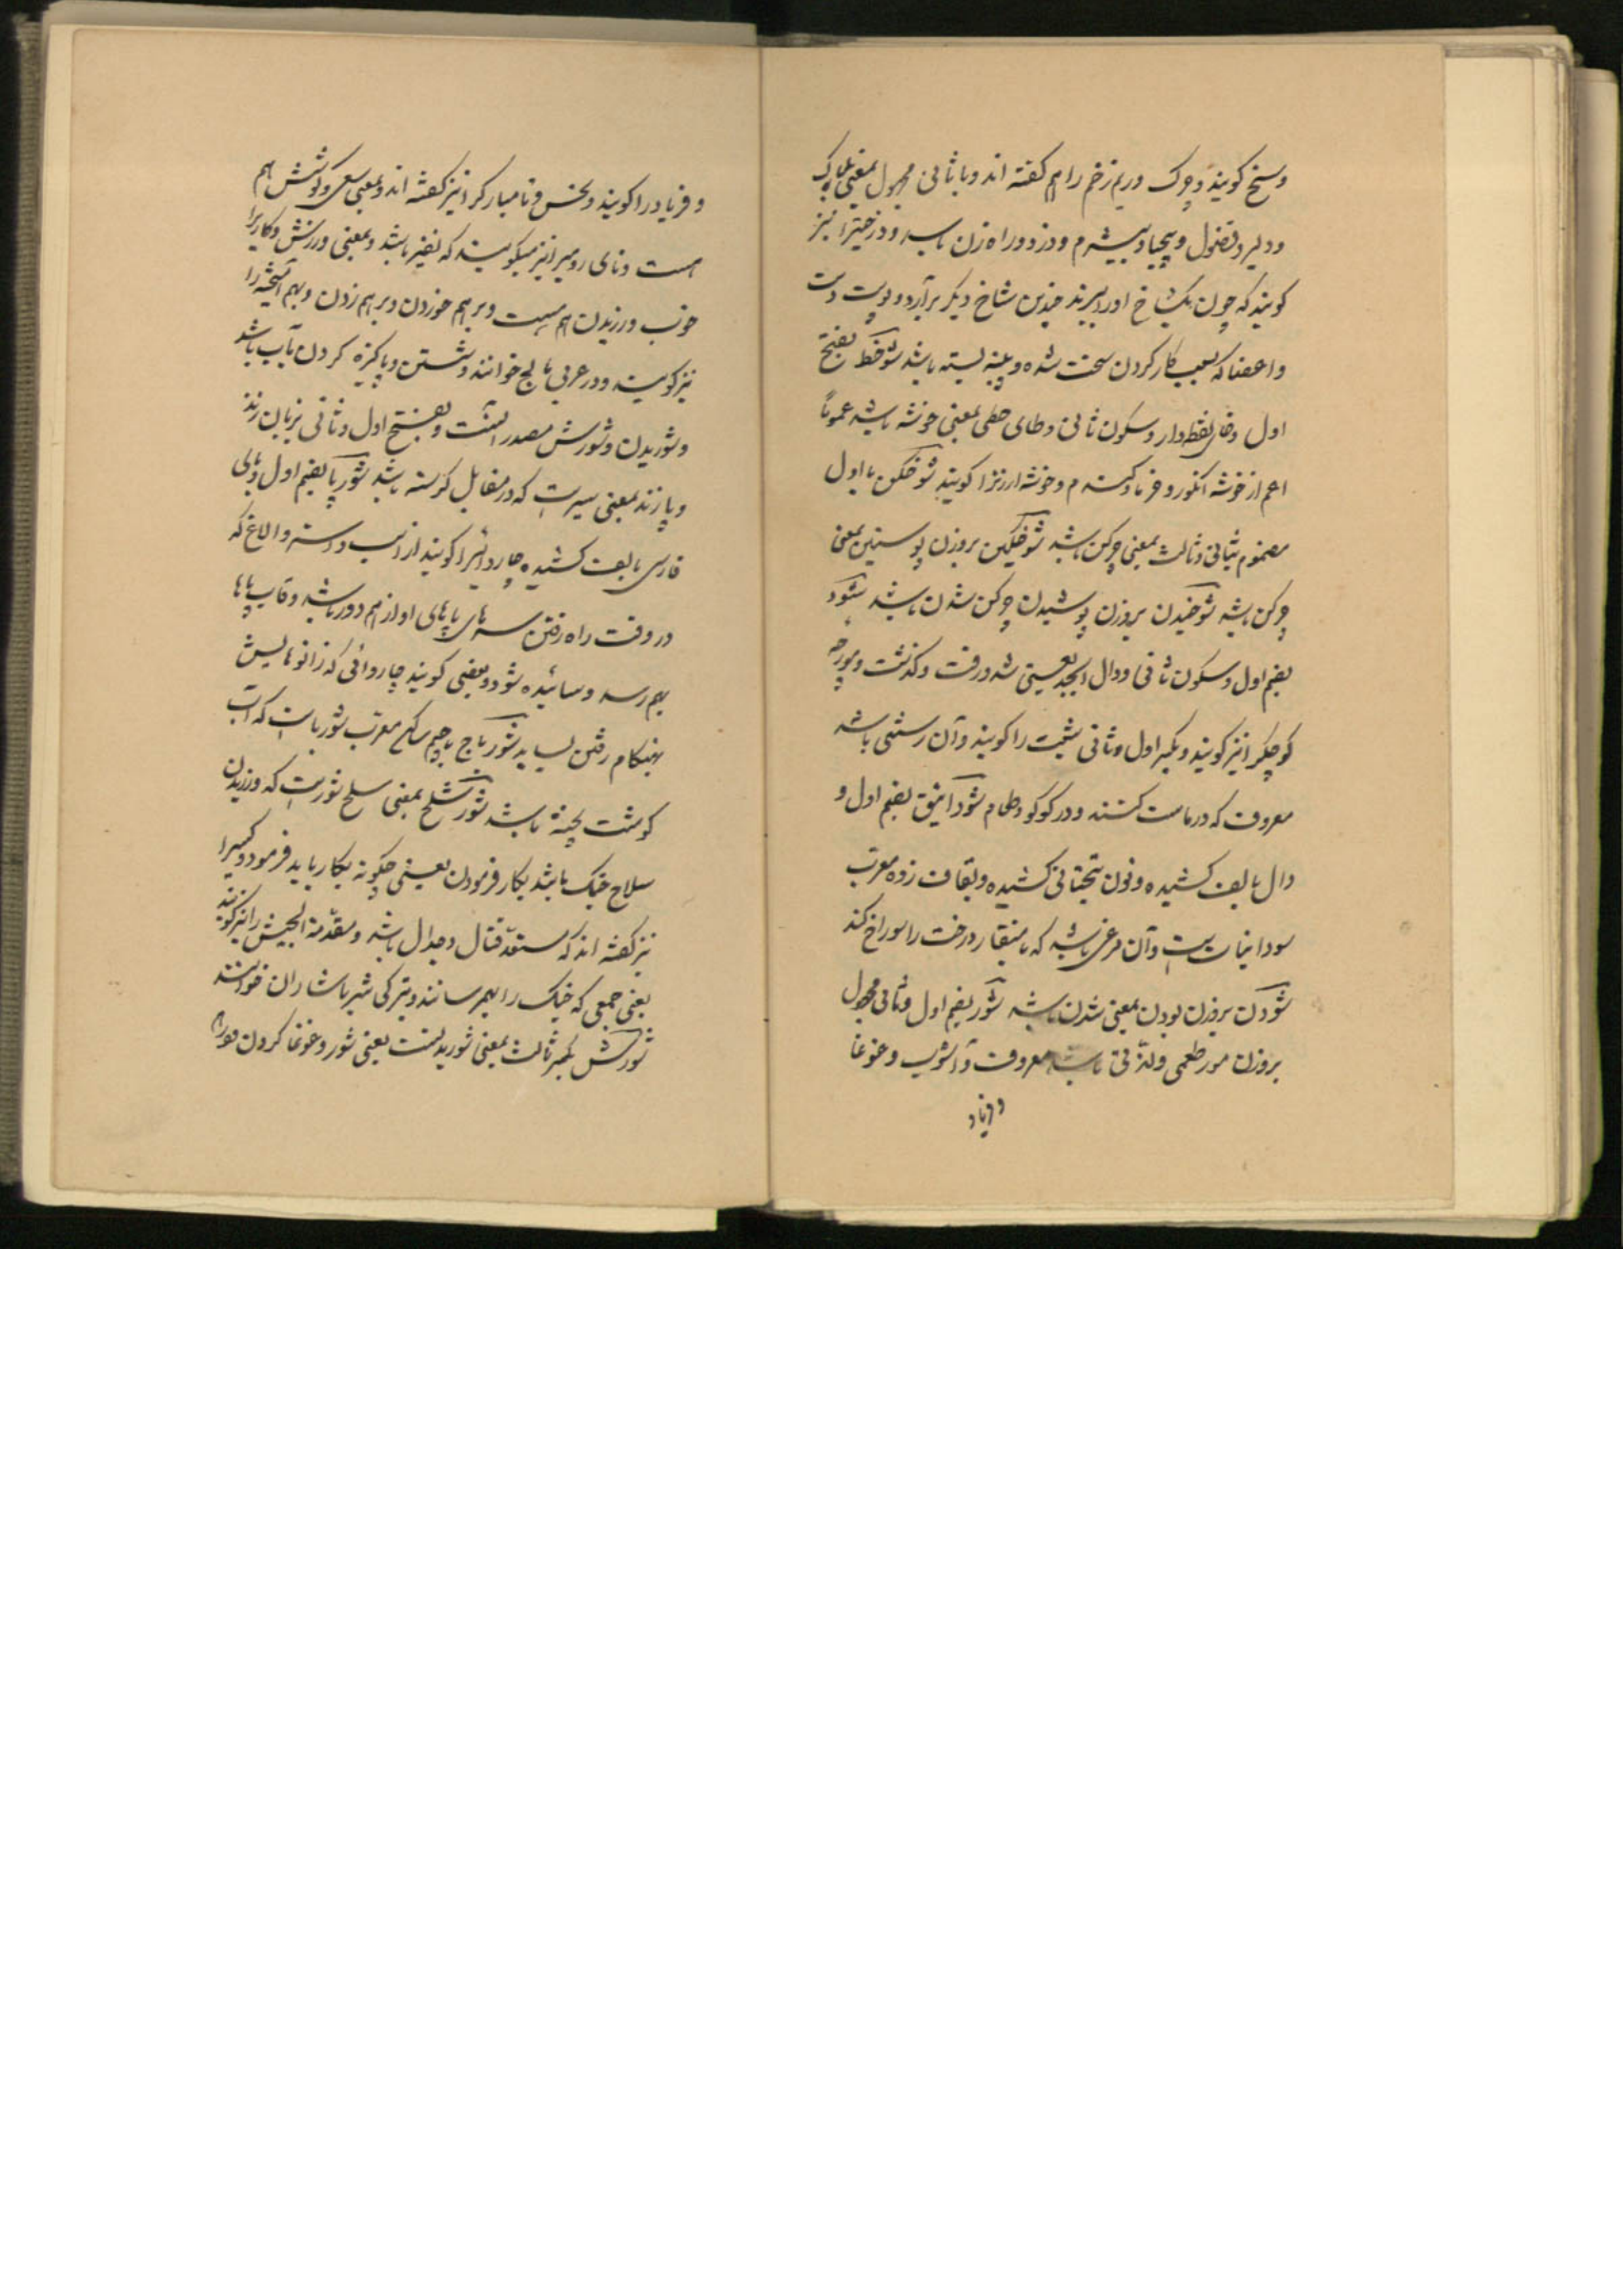 وسخ کویند و چرک و ریم زخم را هم کفته اند و با ثانی مجهول بمعنی بیباک
و دلیر و فضول و بیحیا و بیشرم و دزد و راه زن باشد و درختیرا نیز
کویند که چون یکشاخ او را ببرند چندین شاخ دیکر برآرد و پوست دست
و اعضا که بسبب کار کردن سخت شده و پینه بسته باشد شوخط بفتح
اول و خای نقطه دار و سکون ثانی و طای حطی بمعنی خوشه باشد عموماً
اعم از خوشه انکور و خرما و کندم و خوشه ارزنرا کویند شوخکن با اول
مضموم بثانی و ثالث بمعنی چرکن باشد شوخکین بروزن پوستین بمعنی
چرکن باشد شوخیدن بروزن پوشیدن چرکن شدن باشد شود
بضم اول و سکون ثانی و دال ابجد یعنی شد و رفت و کذشت و مورچه
کوچکرا نیز کویند و بکسر اول و ثانی شبت را کویند و آن رستنی باشد
معروف که در ماست کنند و در کوکو و طعام شودانیق بضم اول و
دال بالف کشیده و نون بتحتانی کشیده و بقاف زده معرب
سودانیات است و آن مرغی باشد که با منقار درخت را سوراخ کند
شودن بروزن بودن بمعنی شدن باشد شور بضم اول و ثانی مجهول
بروزن مور طعمی و لذتی باشد معروف و آشوب و غوغا
و فریاد
و فریاد را کویند و نحس و نامبارکرا نیز کفته اند و بمعنی سعی و کوشش هم
هست و نای رومیرا نیز میکویند که نفیر باشد و بمعنی ورزش و کاریرا
خوب ورزیدن هم هست و برهم خوردن و برهم زدن و بهم آمیخته را
نیز کویند و در عربی مالح خوانند و شستن و پاکیزه کردن بآب باشد
و شوریدن و شورش مصدر آنست و بفتح اول و ثانی بزبان زند
و پازند بمعنی سیر است که در مقابل کرسنه باشد شورپا بضم اول و بای
فارسی بالف کشیده چاروائیرا کویند از اسب و استر و الاغ که
در وقت راه رفتن سرهای پاپهای او از هم دور باشد و قاب پاها
بهم رسد و سائیده شود و بعضی کویند چاروائی که زانوهایش
بهنکام رفتن بساید شورباج با جیم ساکن معرب شورباست که آب
کوشت پخته باشد شورسلح بمعنی سلح شور است که ورزیدن
سلاح جنک باشد بکار فرمودن یعنی چکونه بکار باید فرمود و کسیرا
نیز کفته اند که مستعد قتال و جدال باشد و مقدمة الجیش را نیز کویند
یعنی جمعی که جنک را بهم رسانند و بترکی شرباشاران خوانند
شورش بکسر ثالث بمعنی شوریدنست یعنی شور و غوغا کردن